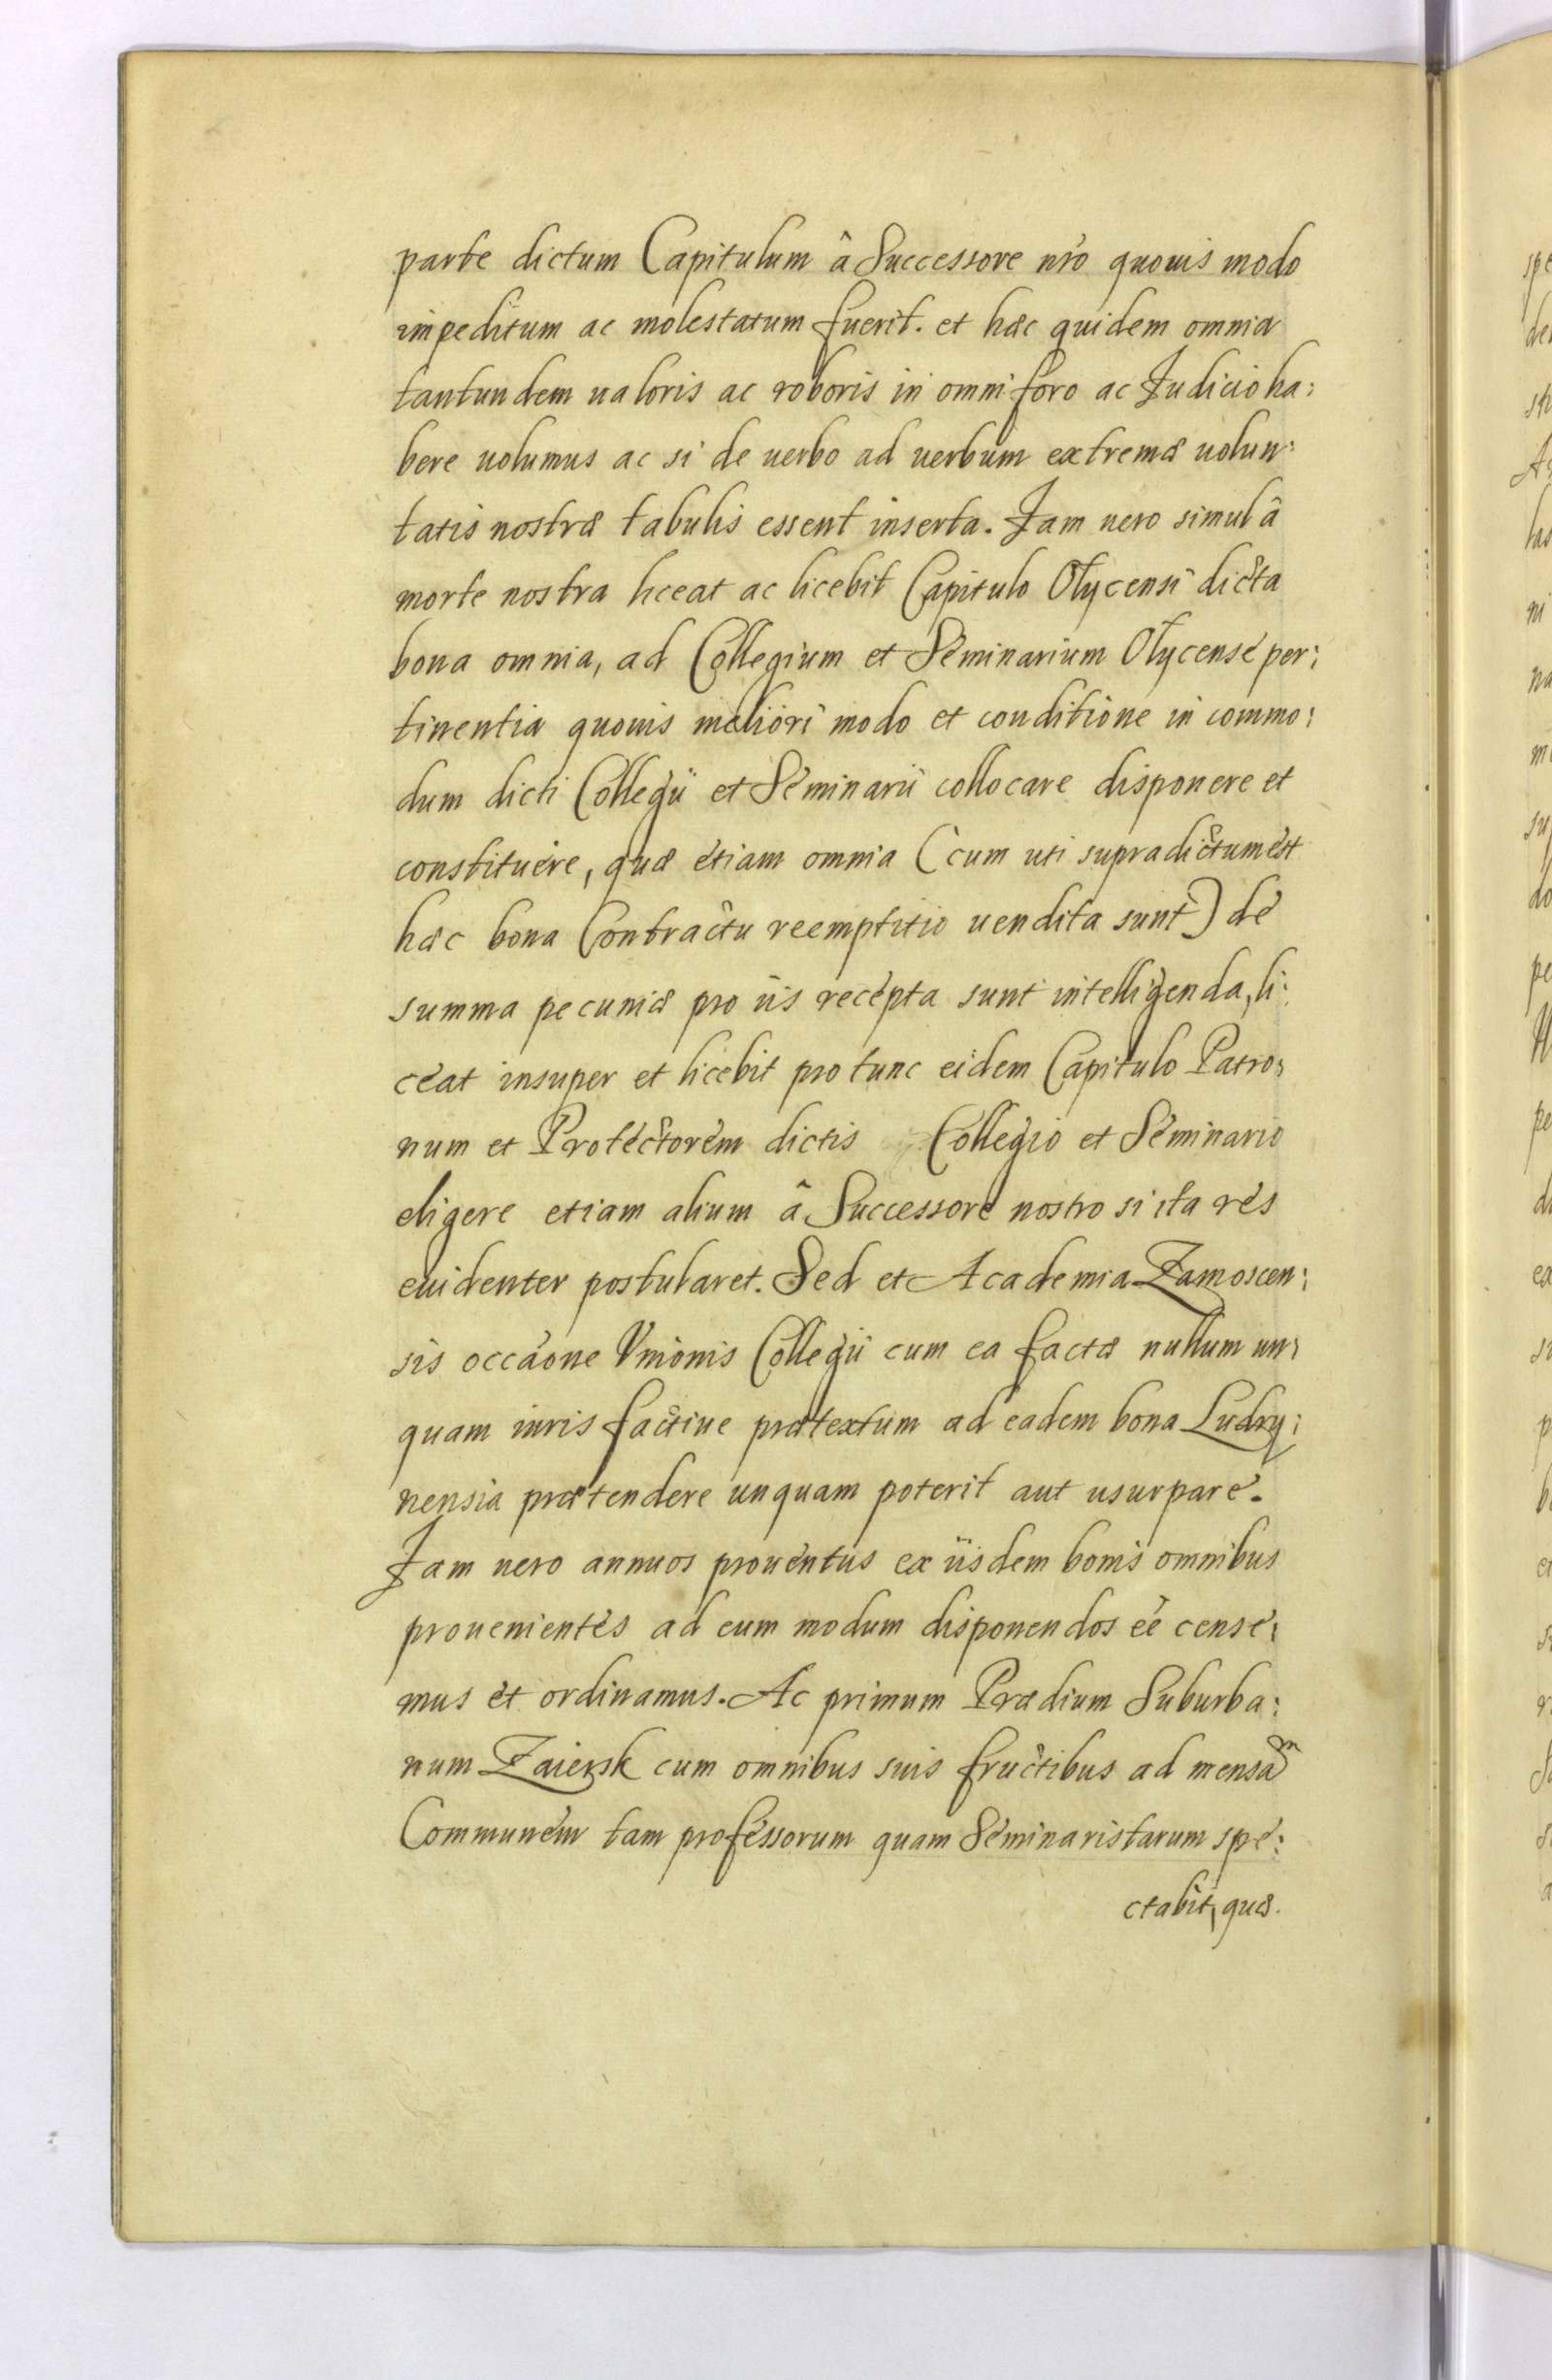 parte dictum Capitulum â Successore nro quouis modo
impeditum ac molestatum fuerit. et hæc quidem omnia
tantundem ualoris ac roboris in omni foro ac Iudicio ha:
bere uolumus ac si de uerbo ad uerbum extremæ uolun:
tatis nostræ tabulis essent inserta. Iam uero simul â
morte nostra liceat ac licebit Capitulo Olycensi dicta
bona omnia, ad Collegium et Seminarium Olycense per:
tinentia quouis meliori modo et conditione in commo:
dum dicti Collegii et Seminarii collocare disponere et
constituere, quæ etiam omnia (cum uti supradictum est
hæc bona Contractu reemptitio uendita sunt) de
summa pecuniæ pro iis recepta sunt intelligenda, li:
ceat insuper et licebit pro tunc eidem Capitulo Patro:
num et Protectorem dictis Collegio et Seminario
eligere etiam alium â Successore nostro si ita res
euidenter postularet. Sed et Academia Zamoscen:
sis occaone Vnionis Collegii cum ea factæ nullum un:
quam iuris factiue prætextum ad eadem bona Ludzy:
nensia prætendere unquam poterit aut usurpare.
Iam uero annuos prouentus ex iisdem bonis omnibus
prouenientes ad eum modum disponendos eé cense:
mus et ordinamus. Ac primum Prædium Suburba:
num Zaiezsk cum omnibus suis fructibus ad mensam
Communem tam professorum quam Seminaristarum spe:
ctabit, quæ.